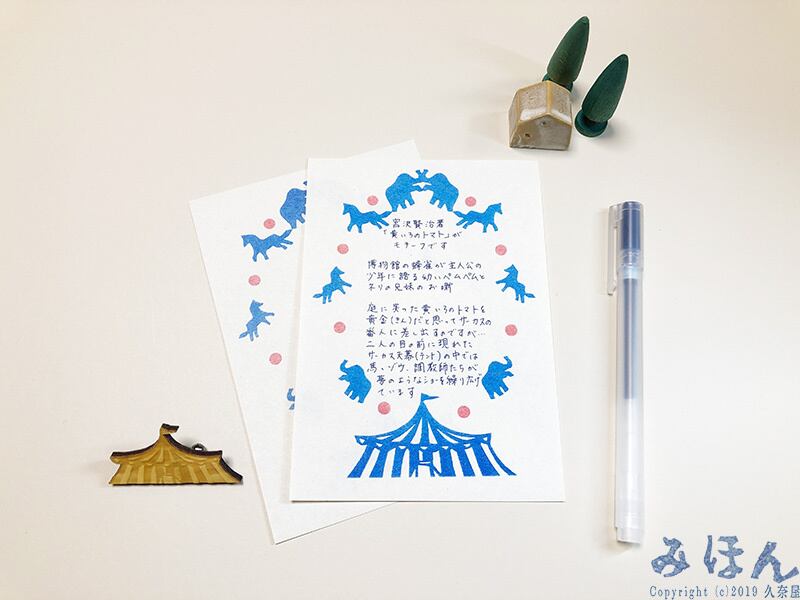 宮沢賢治著
「黄いろのトマト」が
モチーフです
博物館の蜂雀が主人公の
少年に語る幼いペムペムと
ネリの兄妹のお噺
庭に実った黄いろのトマトを
黄金(きん)だと思ってサーカスの
番人に差し出すのですが…
二人の目の前に現れた
サーカス天幕(テント)の中では
馬、ゾウ、調教師たちが
夢のようなショーを繰り広げ
ています
みほん
Copyright (c)2019 久奈屋